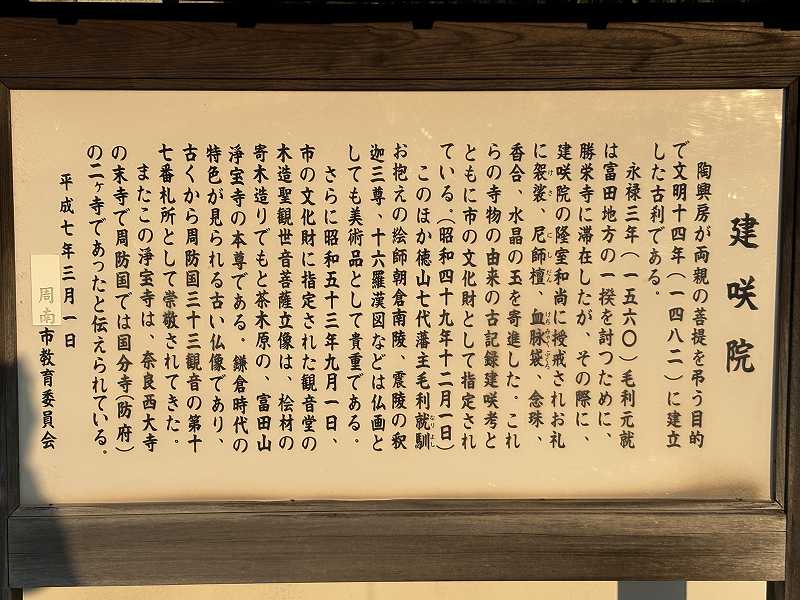 建咲院
陶興房が両親の菩提を弔う目的
で文明十四年（一四八二）に建立
した古刹である。
永禄三年（一五六〇）毛利元就
は富田地方の一揆を討つために、
勝栄寺に滞在したが、その際に、
建咲院の隆室和尚に授戒されお礼
に袈裟、尼師檀、血脉袋、念珠、
香合、水晶の玉を寄進した。これ
らの寺物の由来の古記録建咲考と
ともに市の文化財として指定され
ている。（昭和四十九年十二月一日）
このほか徳山七代藩主毛利就馴
お抱えの絵師朝倉南陵、震陵の釈
迦三尊、十六羅漢図などは仏画と
しても美術品として貴重である。
さらに昭和五十三年九月一日、
市の文化財に指定された観音堂の
木造聖観世音菩薩立像は、桧材の
寄木造りでもと茶木原の、富田山
浄宝寺の本尊である。鎌倉時代の
特色が見られる古い仏像であり、
古くから周防国三十三観音の第十
七番札所として崇敬されてきた。
またこの浄宝寺は、奈良西大寺
の末寺で周防国では国分寺（防府）
の二ヶ寺であったと伝えられている。
平成七年三月一日
周南市教育委員会